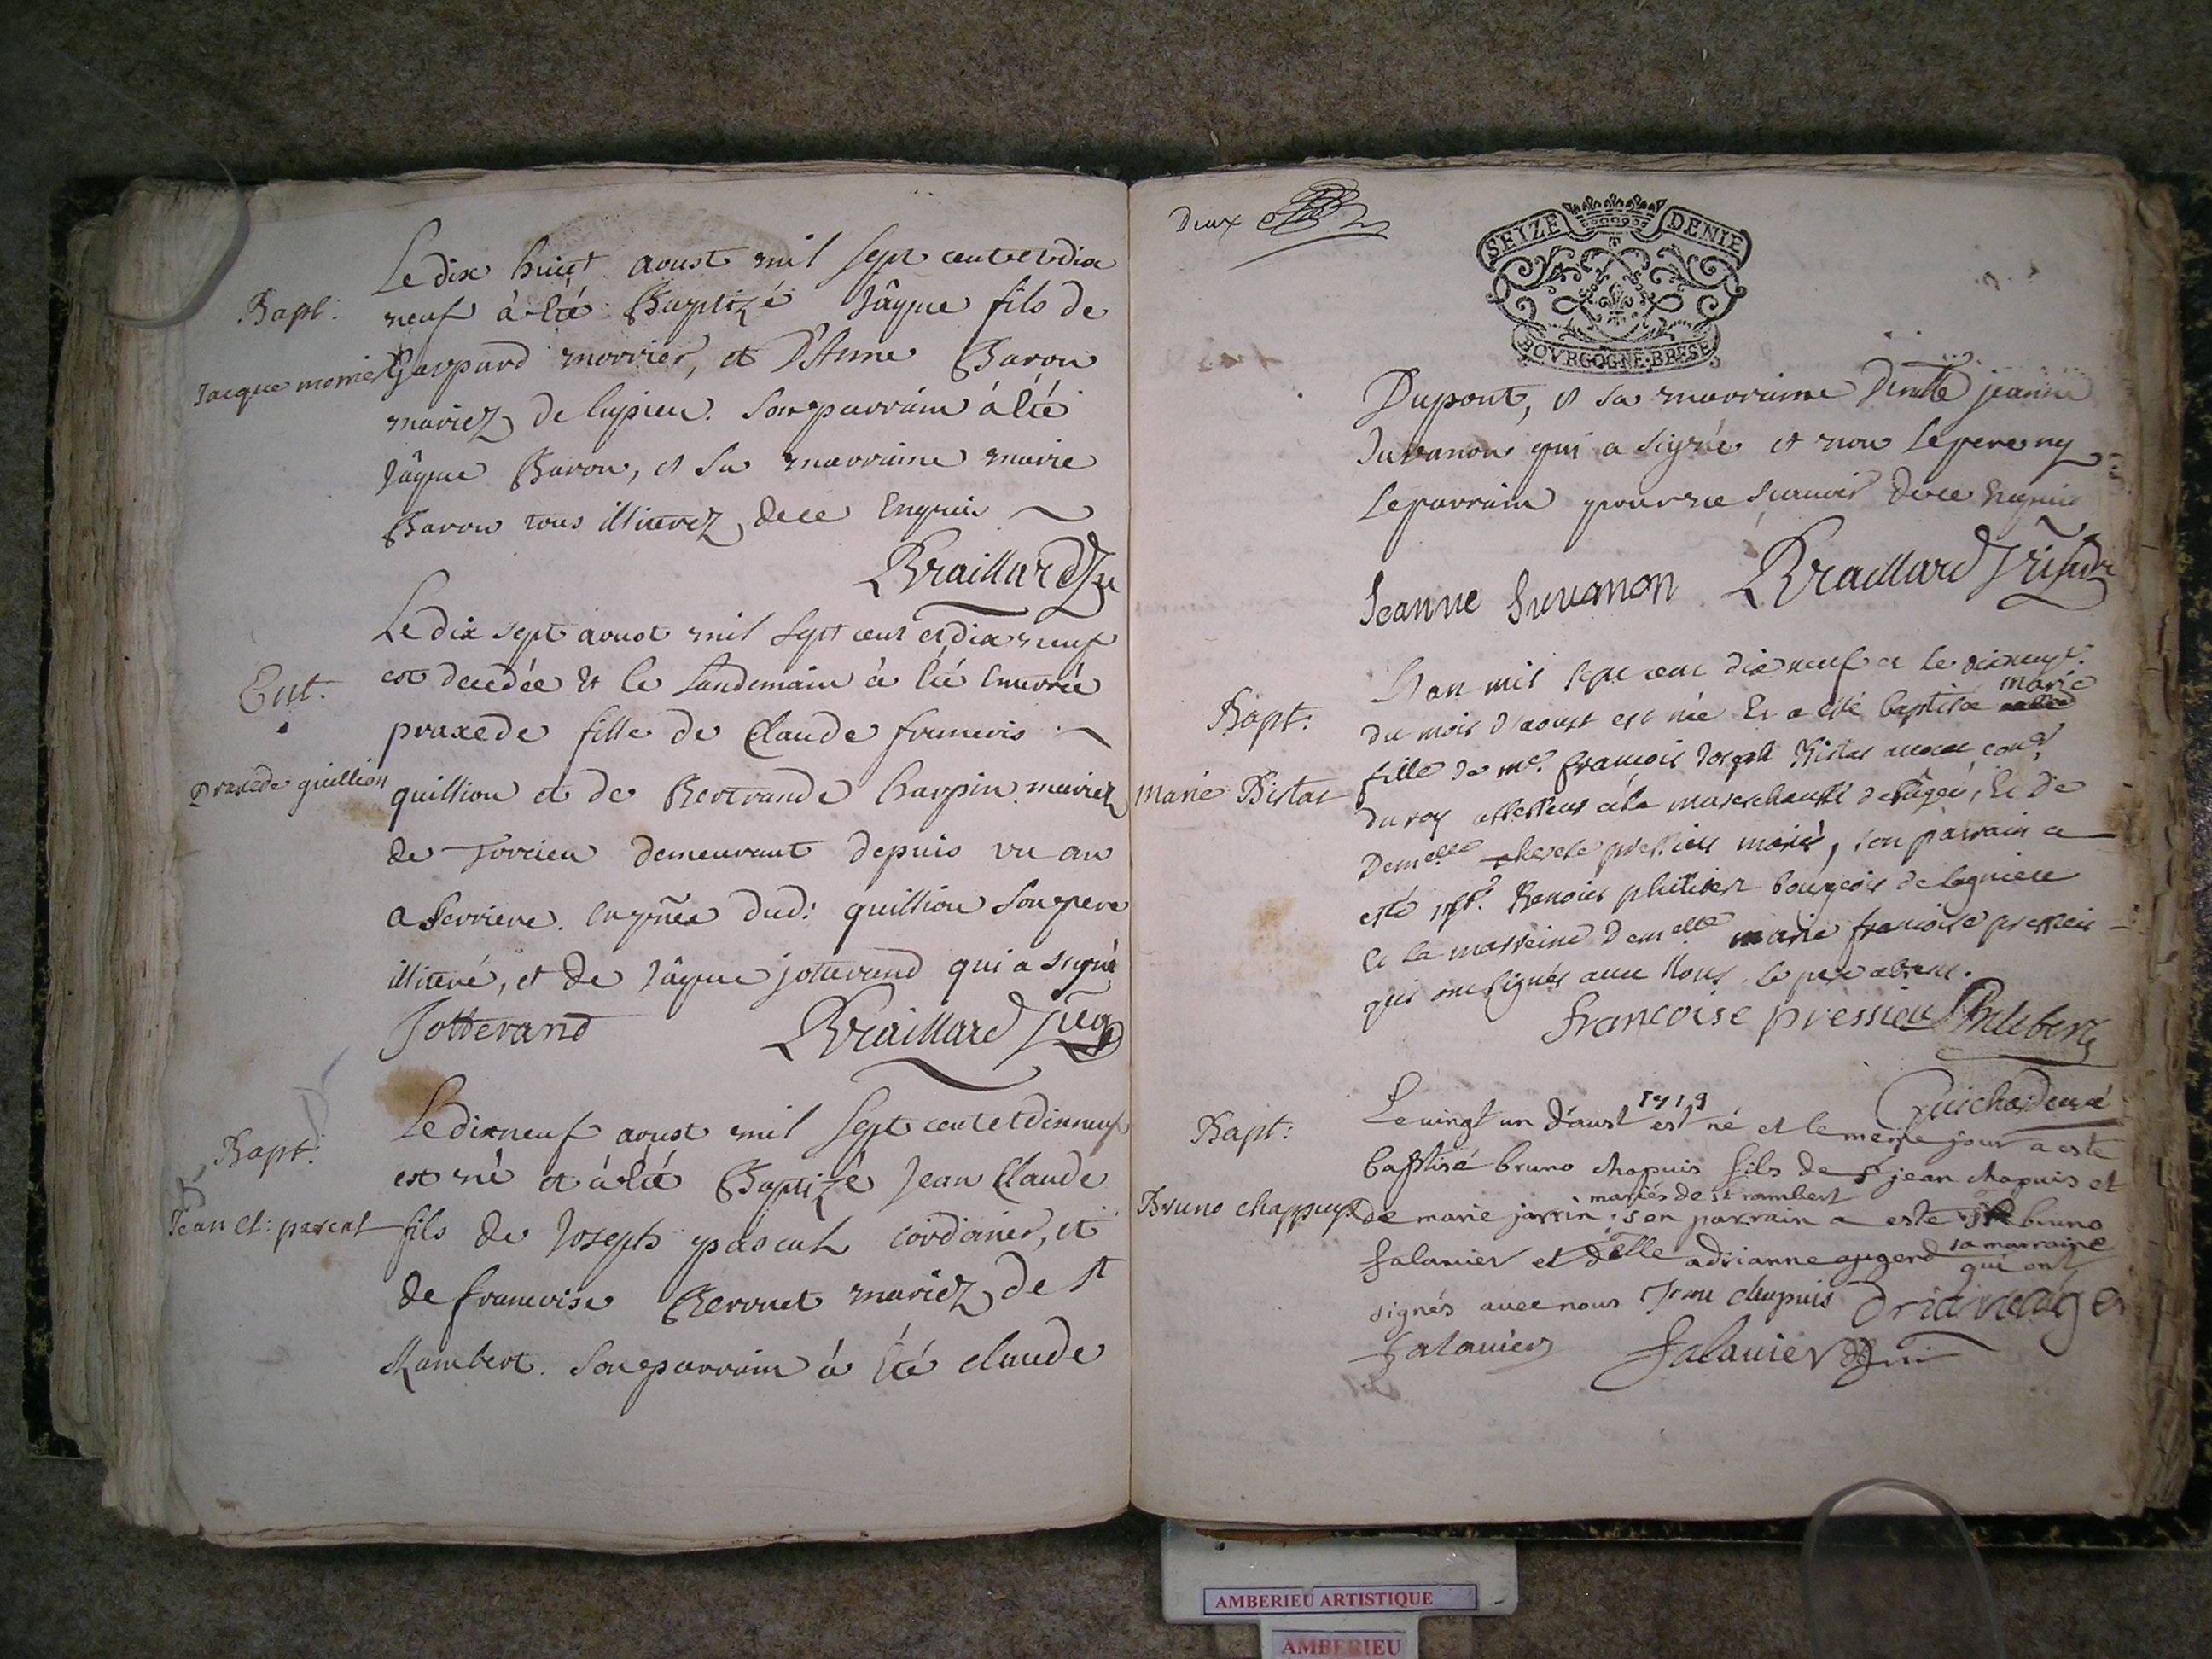 Bapt:
Jacque morrier
Le dix huict aoust mil sept cent et dix
neuf à été Baptizé Jâque fils de
Gaspard morrier, et D'Anne Baron
mariez de lupieu. Son parrain à été
Jâque Baron, et sa marraine marie
Baron tous illiterez, de ce Enquis
Braillard
Ent.
praxede quillion
Le dix sept aoust mil sept cent et dix neuf
est decedée et le Landemain à été Enterrée
praxede fille de Claude francois
quillion et de Bertrande Charpin mariez
de Torcieu demeurant depuis un an
a Serriere. En pñce dud: quillion Son pere
illiteré, et de Jâque jotterand qui a signé
Jotterand Braillard
Bapt:
Jean Cl: pascal
Le dixneuf aoust mil Sept cent et dixneuf
est né et à été Baptizé Jean Claude
fils de Joseph pascal cordonier, et
de francoise Berrout mariez de st
Rambert. Son parrain à été claude
Deux
SEIZE DENIE
BOVRGOGNE·BRESE
Dupont, et sa marraine Demlle jeanne
Juvanon qui a signé et non le pere ny
le parrain pour ne scavoir de ce Enquis
Jeanne Juvanon Braillard
Bapt:
marie Bistac
L'an mil sept cent dix neuf et le dixneuf
du mois d'aoust est née Et a esté baptisée marie
fille de me. francois Joseph Bistac avocat, conr
du roy assesseur à la mareschaussé de Bugei, Et de
Demelle pressieu mariés, son parrain a
esté sr. Benoit philibert bourgeois de lagnieu
et la marreine Demelle marie francoise pressieu
qui ont signés avec Nous. le pere absent.
francoise pressieu Philibert
Guichard curé
Bapt:
Bruno chappuys
Le vingt un d'aust 1719 est né et le meme jour a este
baptisé bruno chapuis fils de sr jean chapuis et
de marie jarrin mariés de st rambert, son parrain a este sr bruno
falavier et dlle adrianne augerd sa marraine
qui ont
signés avec nous Jean Chapuis
falavier falavier
AMBERIEU ARTISTIQUE
AMBERIEU